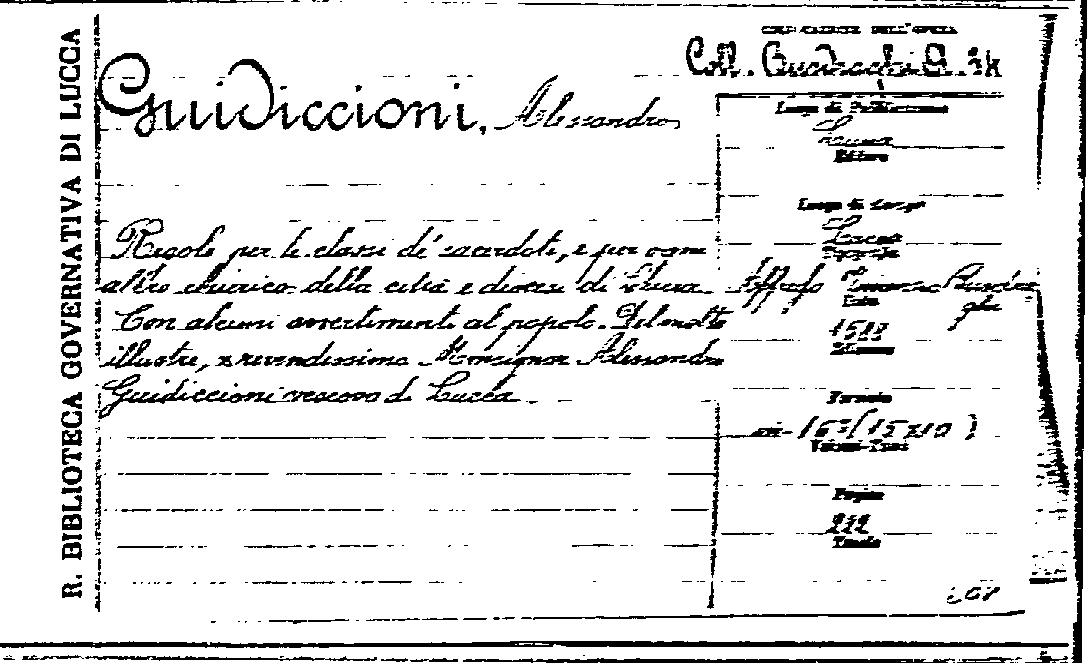 R. BIBLIOTECA GOVERNATIVA DI LUCCA
COLLOCAZIONE DELL'OPERA
Coll.
Guidiccioni, Alessandro
Luogo di Pubblicazione
Lucca
Editore
Luogo di Stampa
Lucca
Tipografo
Regole per le classi de' sacerdoti, e per ogni
altro chierico della città e diocesi di Lucca
Con alcuni avvertimenti al popolo. Del molto
illustre, e reverendissimo Monsignor Alessandro
Guidiccioni vescovo di Lucca
Data
Edizione
Formato
in-16° (15x10)
Volumi-Tomi
Pagine
212
Tavole